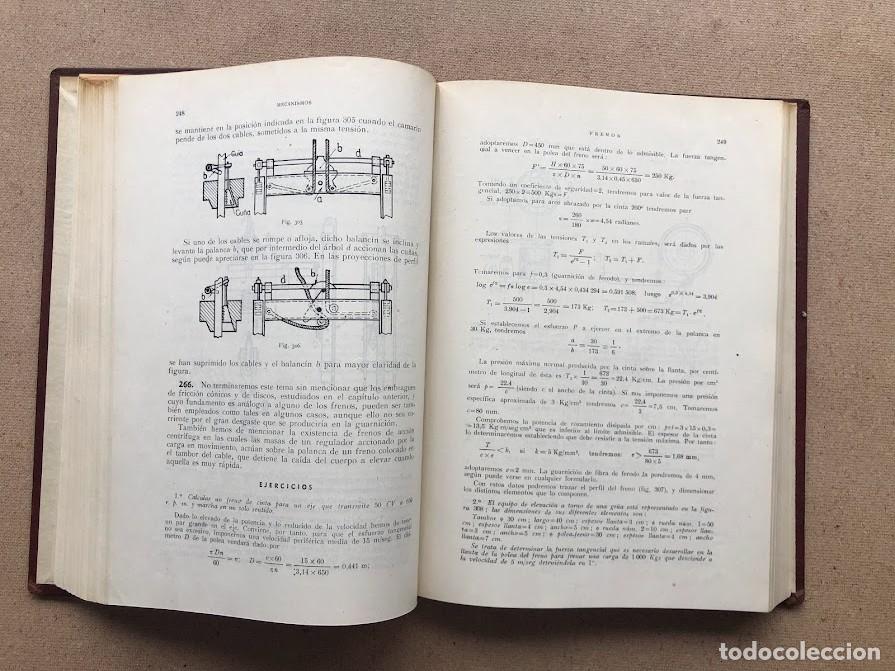 248
MECANISMOS
se mantiene en la posición indicada en la figura 305 cuando el camarín
pende de los dos cables, sometidos a la misma tensión.
Guía
b
d
Cuña
a
Fig. 305
Si uno de los cables se rompe o afloja, dicho balancín se inclina y
levanta la palanca b, que por intermedio del árbol d accionan las cuñas,
según puede apreciarse en la figura 306. En las proyecciones de perfil
b
b
d
Fig. 306
se han suprimido los cables y el balancín h para mayor claridad de la
figura.
266. No terminaremos este tema sin mencionar que los embragues
de fricción cónicos y de discos, estudiados en el capítulo anterior, y
cuyo fundamento es análogo a alguno de los frenos, pueden ser tam-
bién empleados como tales en algunos casos, aunque ello no sea co-
rriente por el gran desgaste que se produciría en la guarnición.
También hemos de mencionar la existencia de frenos de acción
centrífuga en las cuales las masas de un regulador accionado por la
carga en movimiento, actúan sobre la palanca de un freno colocado en
el tambor del cable, que detiene la caída del cuerpo a elevar cuando
aquella es muy rápida.
EJERCICIOS
1.º Calcular un freno de cinta para un eje que transmite 50 CV a 650
r. p. m. y marcha en un solo sentido.
Dado lo elevado de la potencia y lo reducido de la velocidad hemos de tener
un par grande en el eje. Conviene, por tanto, para que el esfuerzo tangencial
no sea excesivo, imponernos una velocidad periférica media de 15 m/seg. El diá-
metro D de la polea verdrá dado por
π Dn / 60 = v; D = v×60 / πn = 15 × 60 / 3,14 × 650 = 0,441 m;
FRENOS
249
adoptaremos D=450 mm que está dentro de lo admisible. La fuerza tangen-
cial a vencer en la polea del freno será:
F' = H × 60 × 75 / π × D × n = 50 × 60 × 75 / 3,14 × 0,45 × 650 = 250 Kg.
Tomando un coeficiente de seguridad=2, tendremos para valor de la fuerza tan-
gencial, 250×2=500 Kgs=F
Si adoptamos para arco abrazado por la cinta 260º tendremos para
α = 260 / 180 × π = 4,54 radianes.
Los valores de las tensiones T₁ y T₂ en los ramales, serán dados por las
expresiones
T₁ = F / e^fα − 1; T₂ = T₁ + F.
Tomaremos para f=0,3 (guarnición de ferodo), y tendremos
log e^fα = fα log e = 0,3 × 4,54 × 0,434 294 = 0,591 508; luego e^0,3×4,54 = 3,904
T₁ = 500 / 3,904 − 1 = 500 / 2,904 = 173 Kg; T₂ = 173 + 500 = 673 Kg = T₁ · e^fα
Si establecemos el esfuerzo P a ejercer en el extremo de la palanca en
30 Kg, tendremos
a / b = 30 / 173 = 1 / 6 .
La presión máxima normal producida por la cinta sobre la llanta, por centí-
metro de longitud de ésta es T₂ × 1 / 30 = 673 / 30 = 22,4 Kg/cm. La presión por cm²
será p = 22,4 / c (siendo c el ancho de la cinta). Si nos imponemos una presión
específica aproximada de 3 Kg/cm² tendremos c= 22,4 / 3 = 7,5 cm. Tomaremos
c=80 mm.
Comprobemos la potencia de rozamiento disipada por cm: pvf=3×15×0,3=
=13,5 Kg m/seg cm² que es inferior al límite admisible. El espesor de la cinta
lo determinaremos estableciendo que debe resistir a la tensión máxima. Por tanto:
T / c × e < k, si k = 5 Kg/mm², tendremos e > 673 / 80 × 5 = 1,68 mm,
adoptaremos e=2 mm. La guarnición de fibra de ferodo la pondremos de 4 mm,
según puede verse en cualquier formulario.
Con estos datos podremos trazar el perfil del freno (fig. 307), y dimensionar
los distintos elementos que lo componen.
2.º El equipo de elevación a torno de una grúa está representado en la figu-
ra 308; las dimensiones de sus diferentes elementos son:
Se trata de determinar la fuerza tangencial que es necesario desarrollar en la
llanta de la polea del freno para frenar una carga de 1 000 Kgs que desciende a
la velocidad de 5 m/seg deteniéndola en 1".
todocoleccion